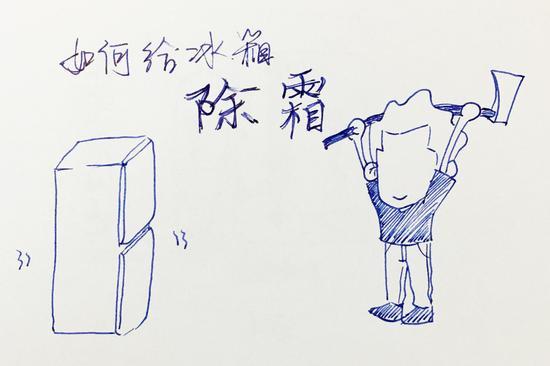 如何给冰箱
除霜